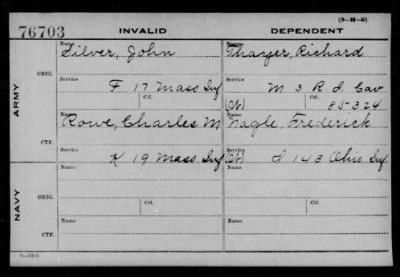 (3-M-5)
76703 INVALID DEPENDENT
Name Name
Silver, John Thayer, Richard
ORIG. Service Service
F 17 Mass Inf M 3 R. I. Cav
Ctf. Ctf.
(Ct) 85-324
ARMY
Rowe, Charles M Nagle, Frederick
CTF. Service Service
K 19 Mass Inf (Ct) I 143 Ohio Inf
Name Name
ORIG.
Ctf. Ctf.
NAVY
Name Name
CTF.